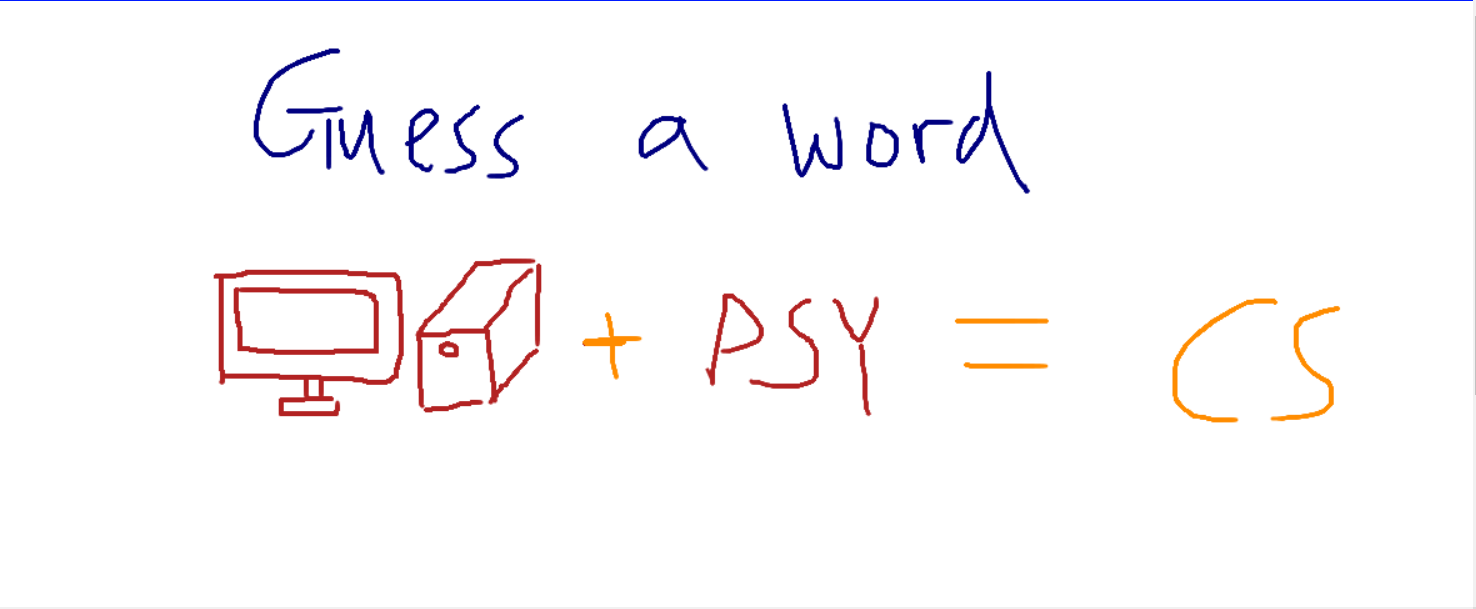 Guess a word
+ PSY = CS